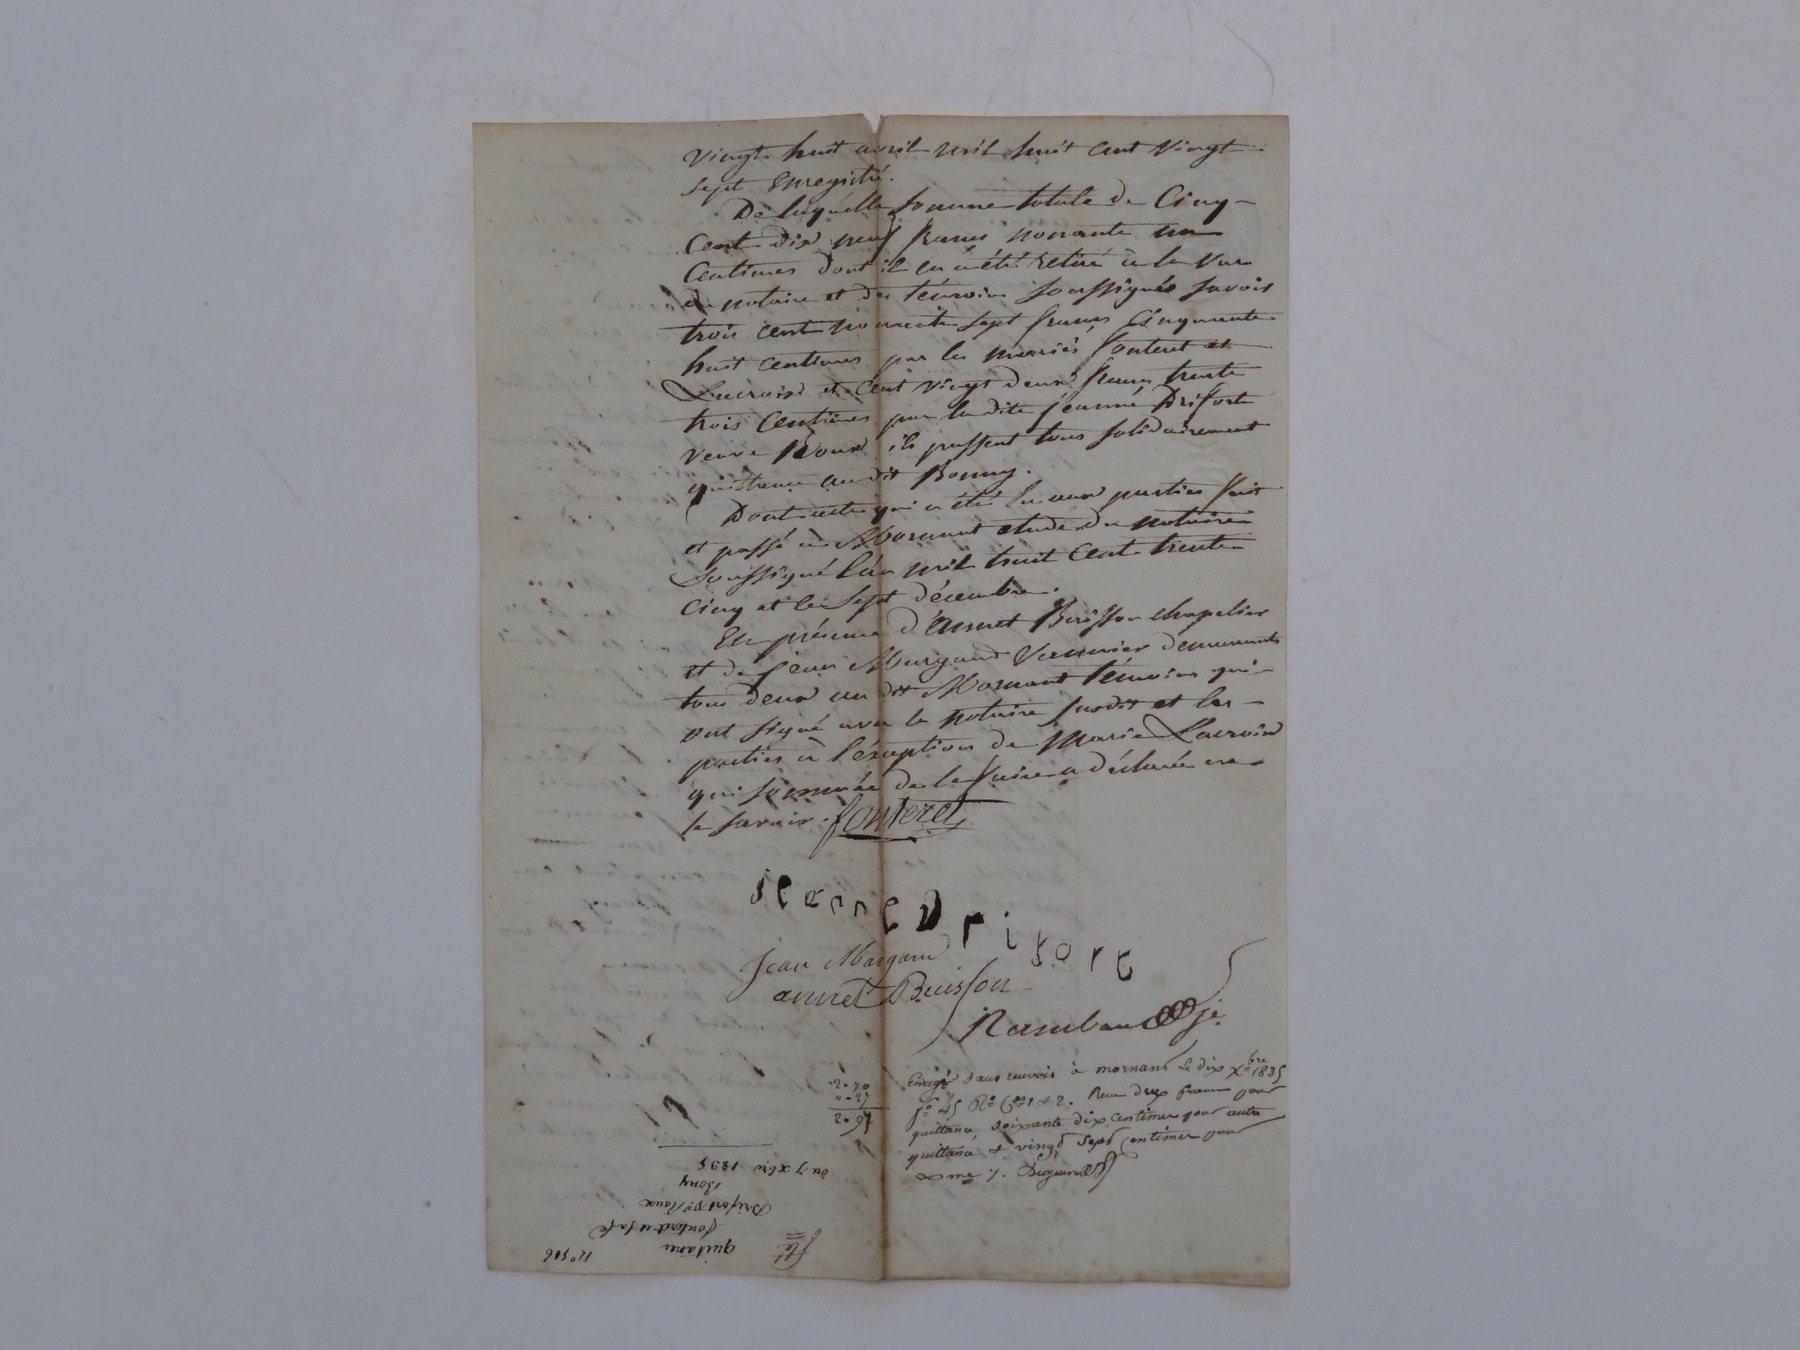 Vingt huit avril mil huit cent vingt
sept Enregistré.
De laquelle somme totale de Cinq
Cent dix neuf francs nonante un
Centimes dont il en a été retiré à la vue
du notaire et des témoins soussignés savoir
trois cent nonante sept francs Cinquante
huit centimes par les mariés fonteret et
Lacroix et Cent vingt deux francs trente
trois Centimes par la dite jeanne Driforte
veuve Roux ils passent tous solidairement
quittance au dit Bonny.
Dont acte qui a été lu aux parties fait
et passé à Mornant etude du notaire
soussigné l'an mil huit Cent trente
Cinq et le sept décembre.
En présence d'annet Buisson chapelier
et de jean Margand Vannier demeurants
tous deux au dit Mornant témoins qui
ont signé avec le notaire susdit et les
parties à l'éxception de Marie Lacroix
qui sommée de le faire a déclaré ne
le savoir. fonteret
jeanne Drifort
Jean Margand
annet Buisson
Rambaud
Enregé sans renvois à mornant le dix Xbre 1835
fo 45 Ro Ces 1 et 2. Reçu deux francs pour
quittance, soixante dix centimes pour autre
quittance et vingt sept centimes pour
2-70
"-27
2-97
fté
N° 516
quitance
fonteret et sa fe
Drifort Ve Roux
Bony
Du 7 xbre 1835